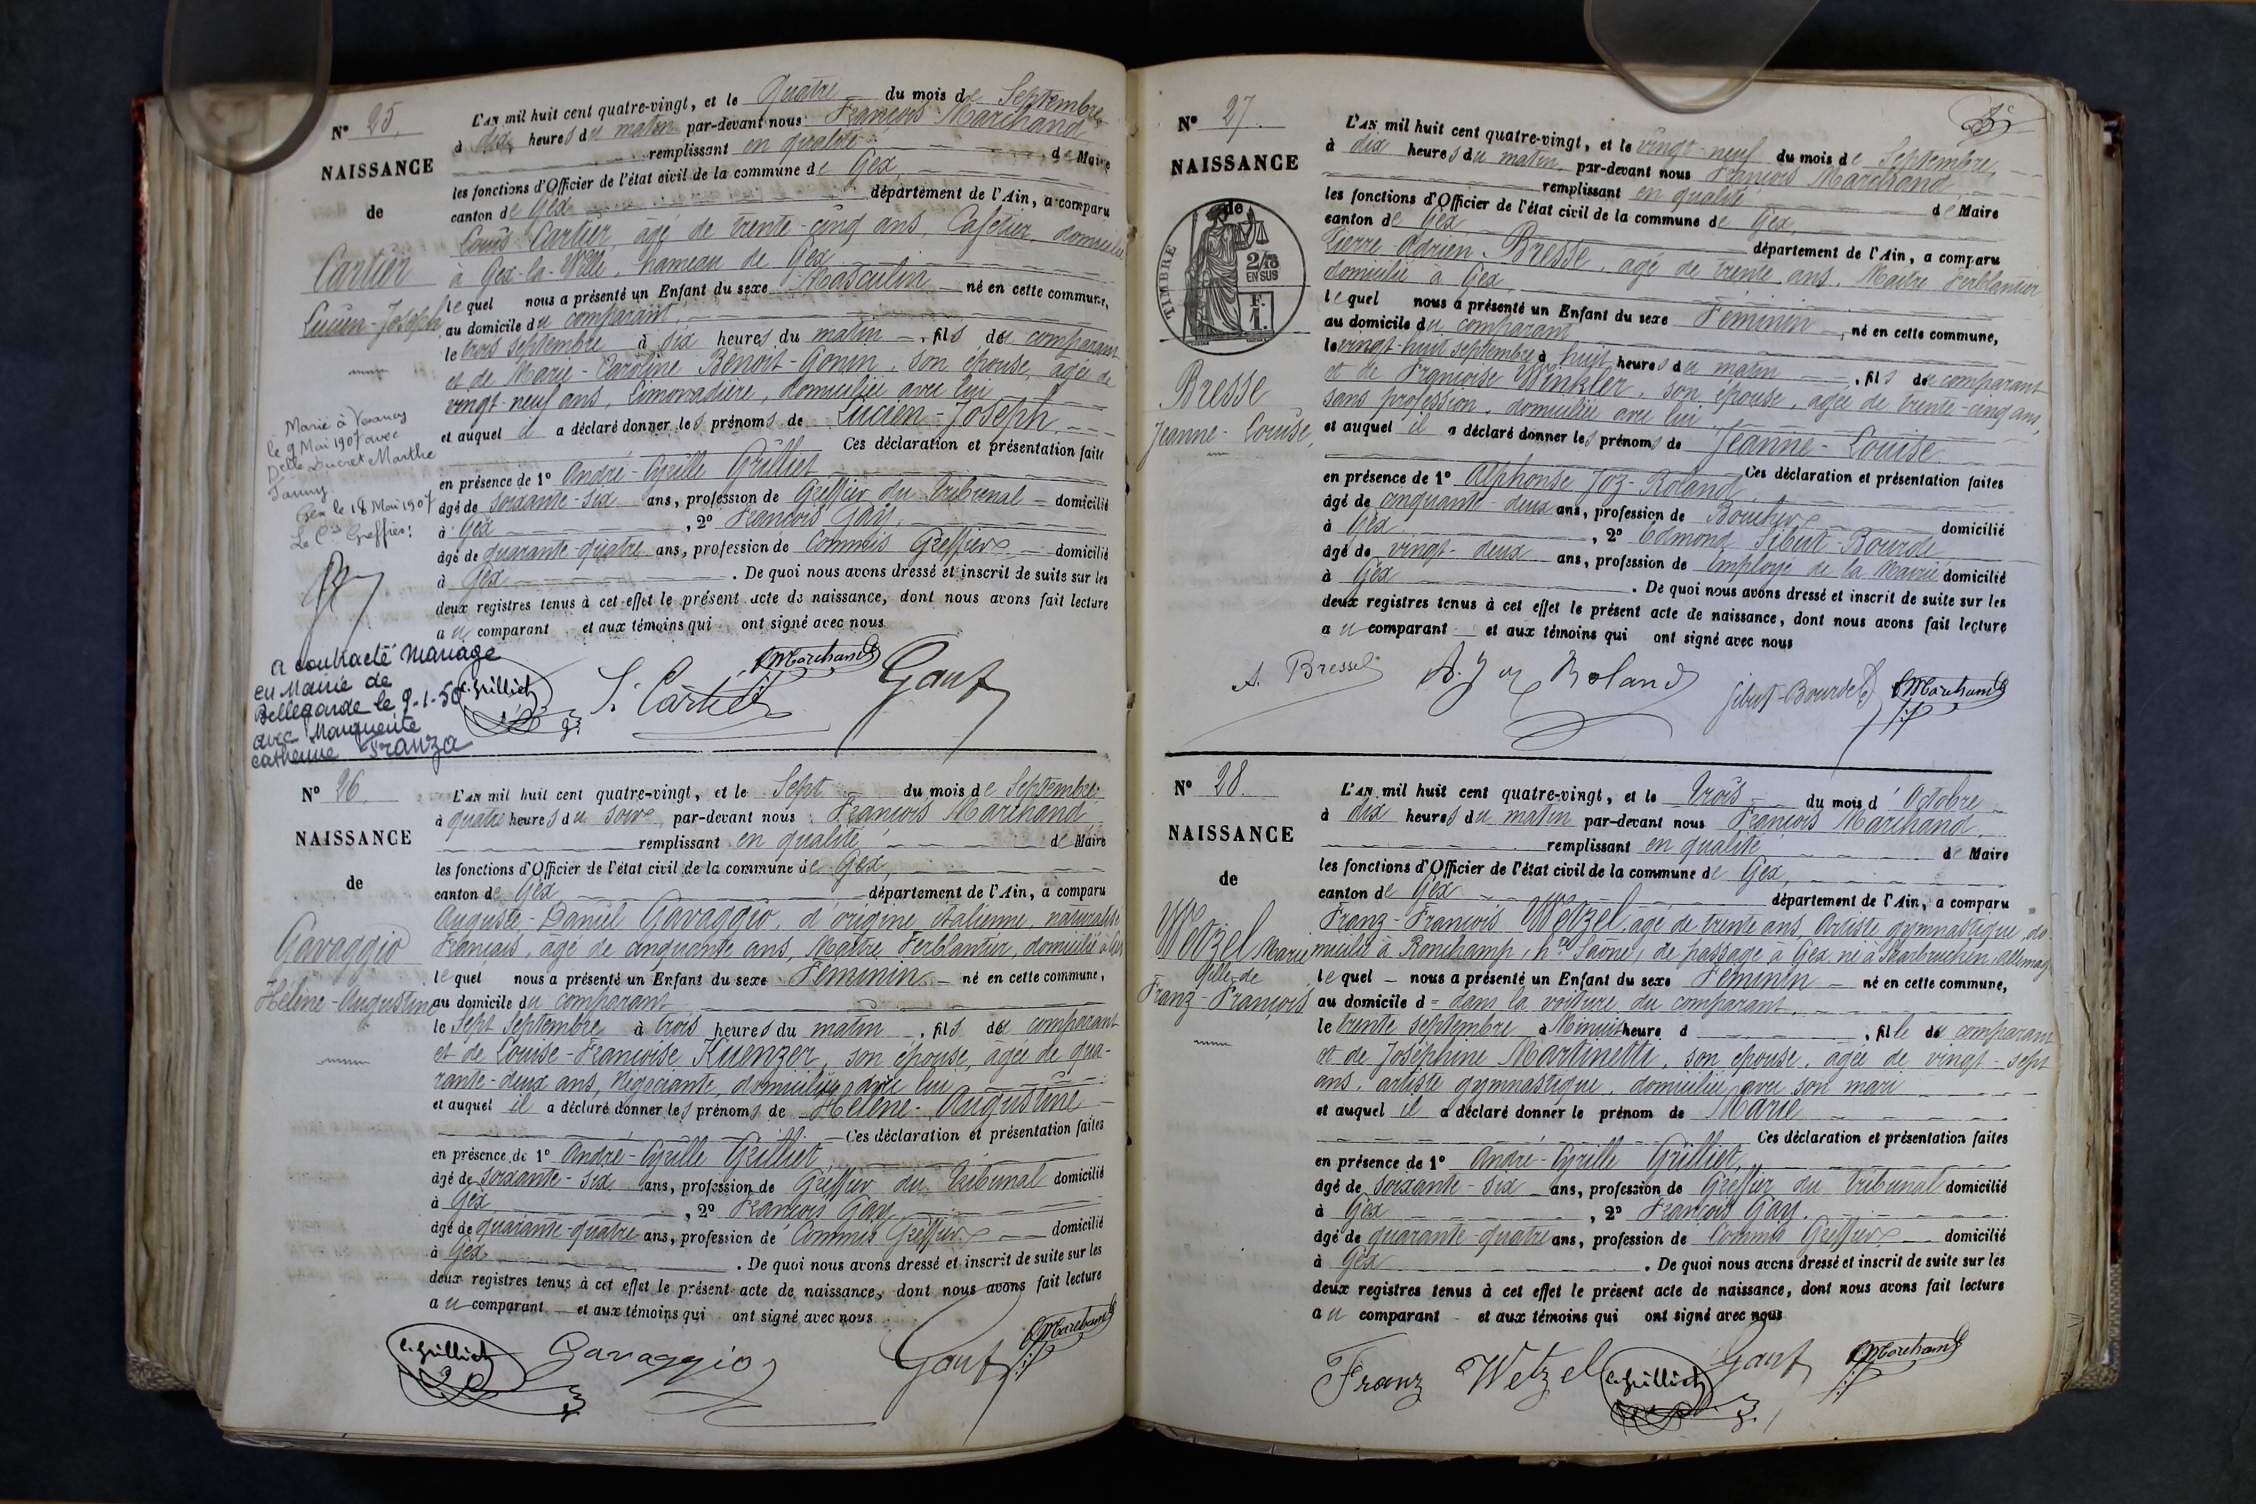 N° 25.
NAISSANCE
de
Cartier
Lucien-Joseph
Marié à
le 9 Mai 1907 avec
Delle Ducret Marthe
Fanny
Gex le 18 Mai 1907
Le Cis Greffier:
a contracté mariage
en Mairie de
Bellegarde le 9-1-50
avec Marguerite
Catherine Franza
L'AN mil huit cent quatre-vingt, et le quatre du mois de Septembre,
à dix heures du matin par-devant nous François Marchand
remplissant en qualité de Maire
les fonctions d'Officier de l'état civil de la commune de Gex,
canton de Gex département de l'Ain, a comparu
Louis Cartier, âgé de trente-cinq ans, Cafetier, domicilié
à Gex-la-Ville, hameau de Gex
lequel nous a présenté un Enfant du sexe Masculin né en cette commune,
au domicile du comparant
le trois septembre à dix heures du matin, fils du comparant
et de Marie-Caroline Benoit-Gonin, son épouse, âgée de
vingt-neuf ans, Limonadière, domiciliée avec lui
et auquel il a déclaré donner les prénoms de Lucien-Joseph,
Ces déclaration et présentation faite
en présence de 1° André-Cyrille Grilliet
âgé de soixante-six ans, profession de Greffier du Tribunal domicilié
à Gex, 2° François Gay,
âgé de quarante-quatre ans, profession de Commis Greffier domicilié
à Gex. De quoi nous avons dressé et inscrit de suite sur les
deux registres tenus à cet effet le présent acte de naissance, dont nous avons fait lecture
au comparant et aux témoins qui ont signé avec nous
C. Grilliet L. Cartier F Marchand Gay f
N° 26
NAISSANCE
de
Gavaggio
Hélène-Augustine
L'AN mil huit cent quatre-vingt, et le Sept du mois de Septembre
à quatre heures du soir, par-devant nous François Marchand
remplissant en qualité de Maire
les fonctions d'Officier de l'état civil de la commune de Gex,
canton de Gex département de l'Ain, a comparu
Auguste-Daniel Gavaggio, d'origine italienne, naturalisé
Français, âgé de cinquante ans, Maître Ferblantier, domicilié à Gex
lequel nous a présenté un Enfant du sexe Féminin né en cette commune,
au domicile du comparant
le sept Septembre à trois heures du matin, fils du comparant
et de Louise-Françoise Kuenzer, son épouse, âgée de qua-
rante-deux ans, Négociante, domiciliée avec lui
et auquel il a déclaré donner les prénoms de Hélène-Augustine
Ces déclaration et présentation faites
en présence de 1° André-Cyrille Grilliet,
âgé de soixante-six ans, profession de Greffier du Tribunal domicilié
à Gex, 2° François Gay
âgé de quarante-quatre ans, profession de Commis Greffier domicilié
à Gex. De quoi nous avons dressé et inscrit de suite sur les
deux registres tenus à cet effet le présent acte de naissance, dont nous avons fait lecture
au comparant et aux témoins qui ont signé avec nous
C. Grilliet Gavaggio Gay f F Marchand
N° 27.
NAISSANCE
de
TIMBRE
2/10
EN SUS
F.
1.
Bresse
Jeanne-Louise,
L'AN mil huit cent quatre-vingt, et le vingt-neuf du mois de Septembre,
à dix heures du matin par-devant nous François Marchand
remplissant en qualité de Maire
les fonctions d'Officier de l'état civil de la commune de Gex,
canton de Gex département de l'Ain, a comparu
Pierre-Adrien Bresse, âgé de trente ans, Maître Ferblantier
domicilié à Gex,
lequel nous a présenté un Enfant du sexe Féminin, né en cette commune,
au domicile du comparant
le vingt-huit septembre à huit heures du matin, fils du comparant
et de Françoise Winkler, son épouse, âgée de trente-cinq ans,
sans profession, domiciliée avec lui
et auquel il a déclaré donner les prénoms de Jeanne-Louise
Ces déclaration et présentation faites
en présence de 1° Alphonse Joz-Roland
âgé de cinquante-deux ans, profession de Boucher domicilié
à Gex, 2° Edmond Sibut-Bourde
âgé de vingt-deux ans, profession de Employé de la Mairie domicilié
à Gex. De quoi nous avons dressé et inscrit de suite sur les
deux registres tenus à cet effet le présent acte de naissance, dont nous avons fait lecture
au comparant et aux témoins qui ont signé avec nous
A. Bresse A. Joz Roland Sibut-Bourde F Marchand
N° 28.
NAISSANCE
de
Wetzel Marie
fille de
Franz-François
L'AN mil huit cent quatre-vingt, et le trois du mois d'Octobre
à dix heures du matin par-devant nous François Marchand,
remplissant en qualité de Maire
les fonctions d'Officier de l'état civil de la commune de Gex,
canton de Gex département de l'Ain, a comparu
Franz-François Wetzel, âgé de trente ans, Artiste gymnastique, do-
micilié à Ronchamp, (hte Saône), de passage à Gex, né à Saarbruchen, allemag
lequel nous a présenté un Enfant du sexe Féminin né en cette commune,
au domicile d= dans la voiture du comparant,
le trente septembre à Minuit heure d, fille du comparant
et de Joséphine Martinetti, son épouse, âgée de vingt-sept
ans, artiste gymnastique, domiciliée avec son mari
et auquel il a déclaré donner le prénom de Marie
Ces déclaration et présentation faites
en présence de 1° André-Cyrille Grilliet,
âgé de soixante-six ans, profession de Greffier du Tribunal domicilié
à Gex, 2° François Gay.
âgé de quarante-quatre ans, profession de Commis Greffier domicilié
à Gex. De quoi nous avons dressé et inscrit de suite sur les
deux registres tenus à cet effet le présent acte de naissance, dont nous avons fait lecture
au comparant et aux témoins qui ont signé avec nous
Franz Wetzel C. Grilliet Gay f F Marchand